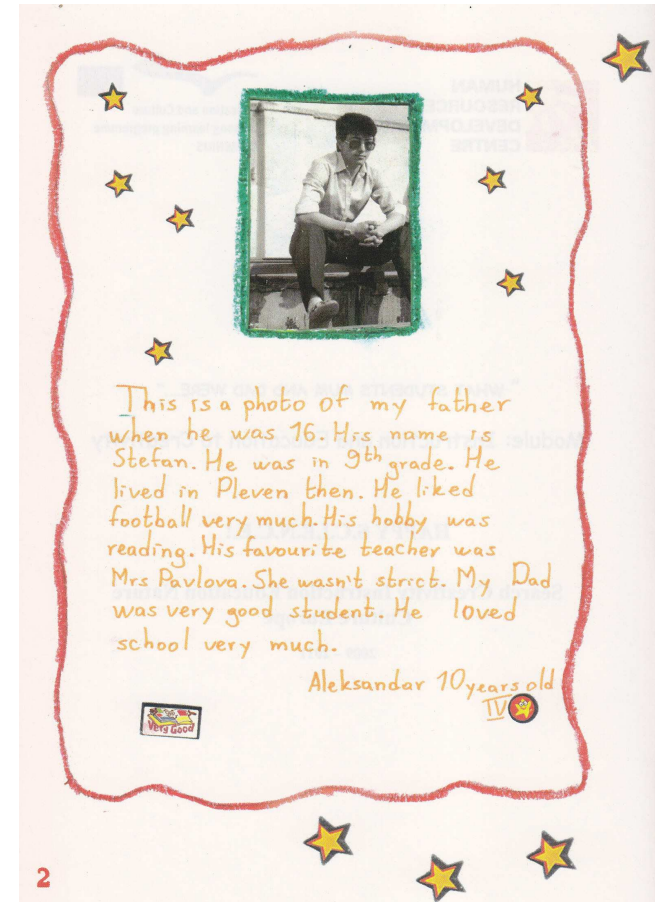 This is a photo of my father
when he was 16. His name is
Stefan. He was in 9th grade. He
lived in Pleven then. He liked
football very much. His hobby was
reading. His favourite teacher was
Mrs Pavlova. She wasn't strict. My Dad
was very good student. He loved
school very much.
Aleksandar 10 years old
IV
Very Good
2